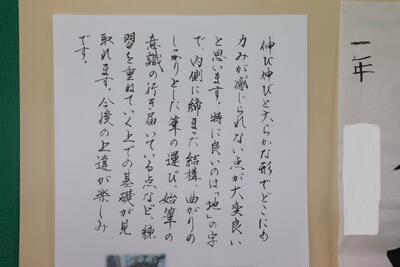 伸び伸びと大らかな形でどこにも
力みが感じられない点が大変良い
と思います。特に良いのは、「地」の字
で、内側に締まった結構、曲がりの
しっかりとした筆の運び、始筆の
意識の行き届いている点など、練
習を重ねていく上での基礎が見
取れます。今後の上達が楽しみ
です。
一年